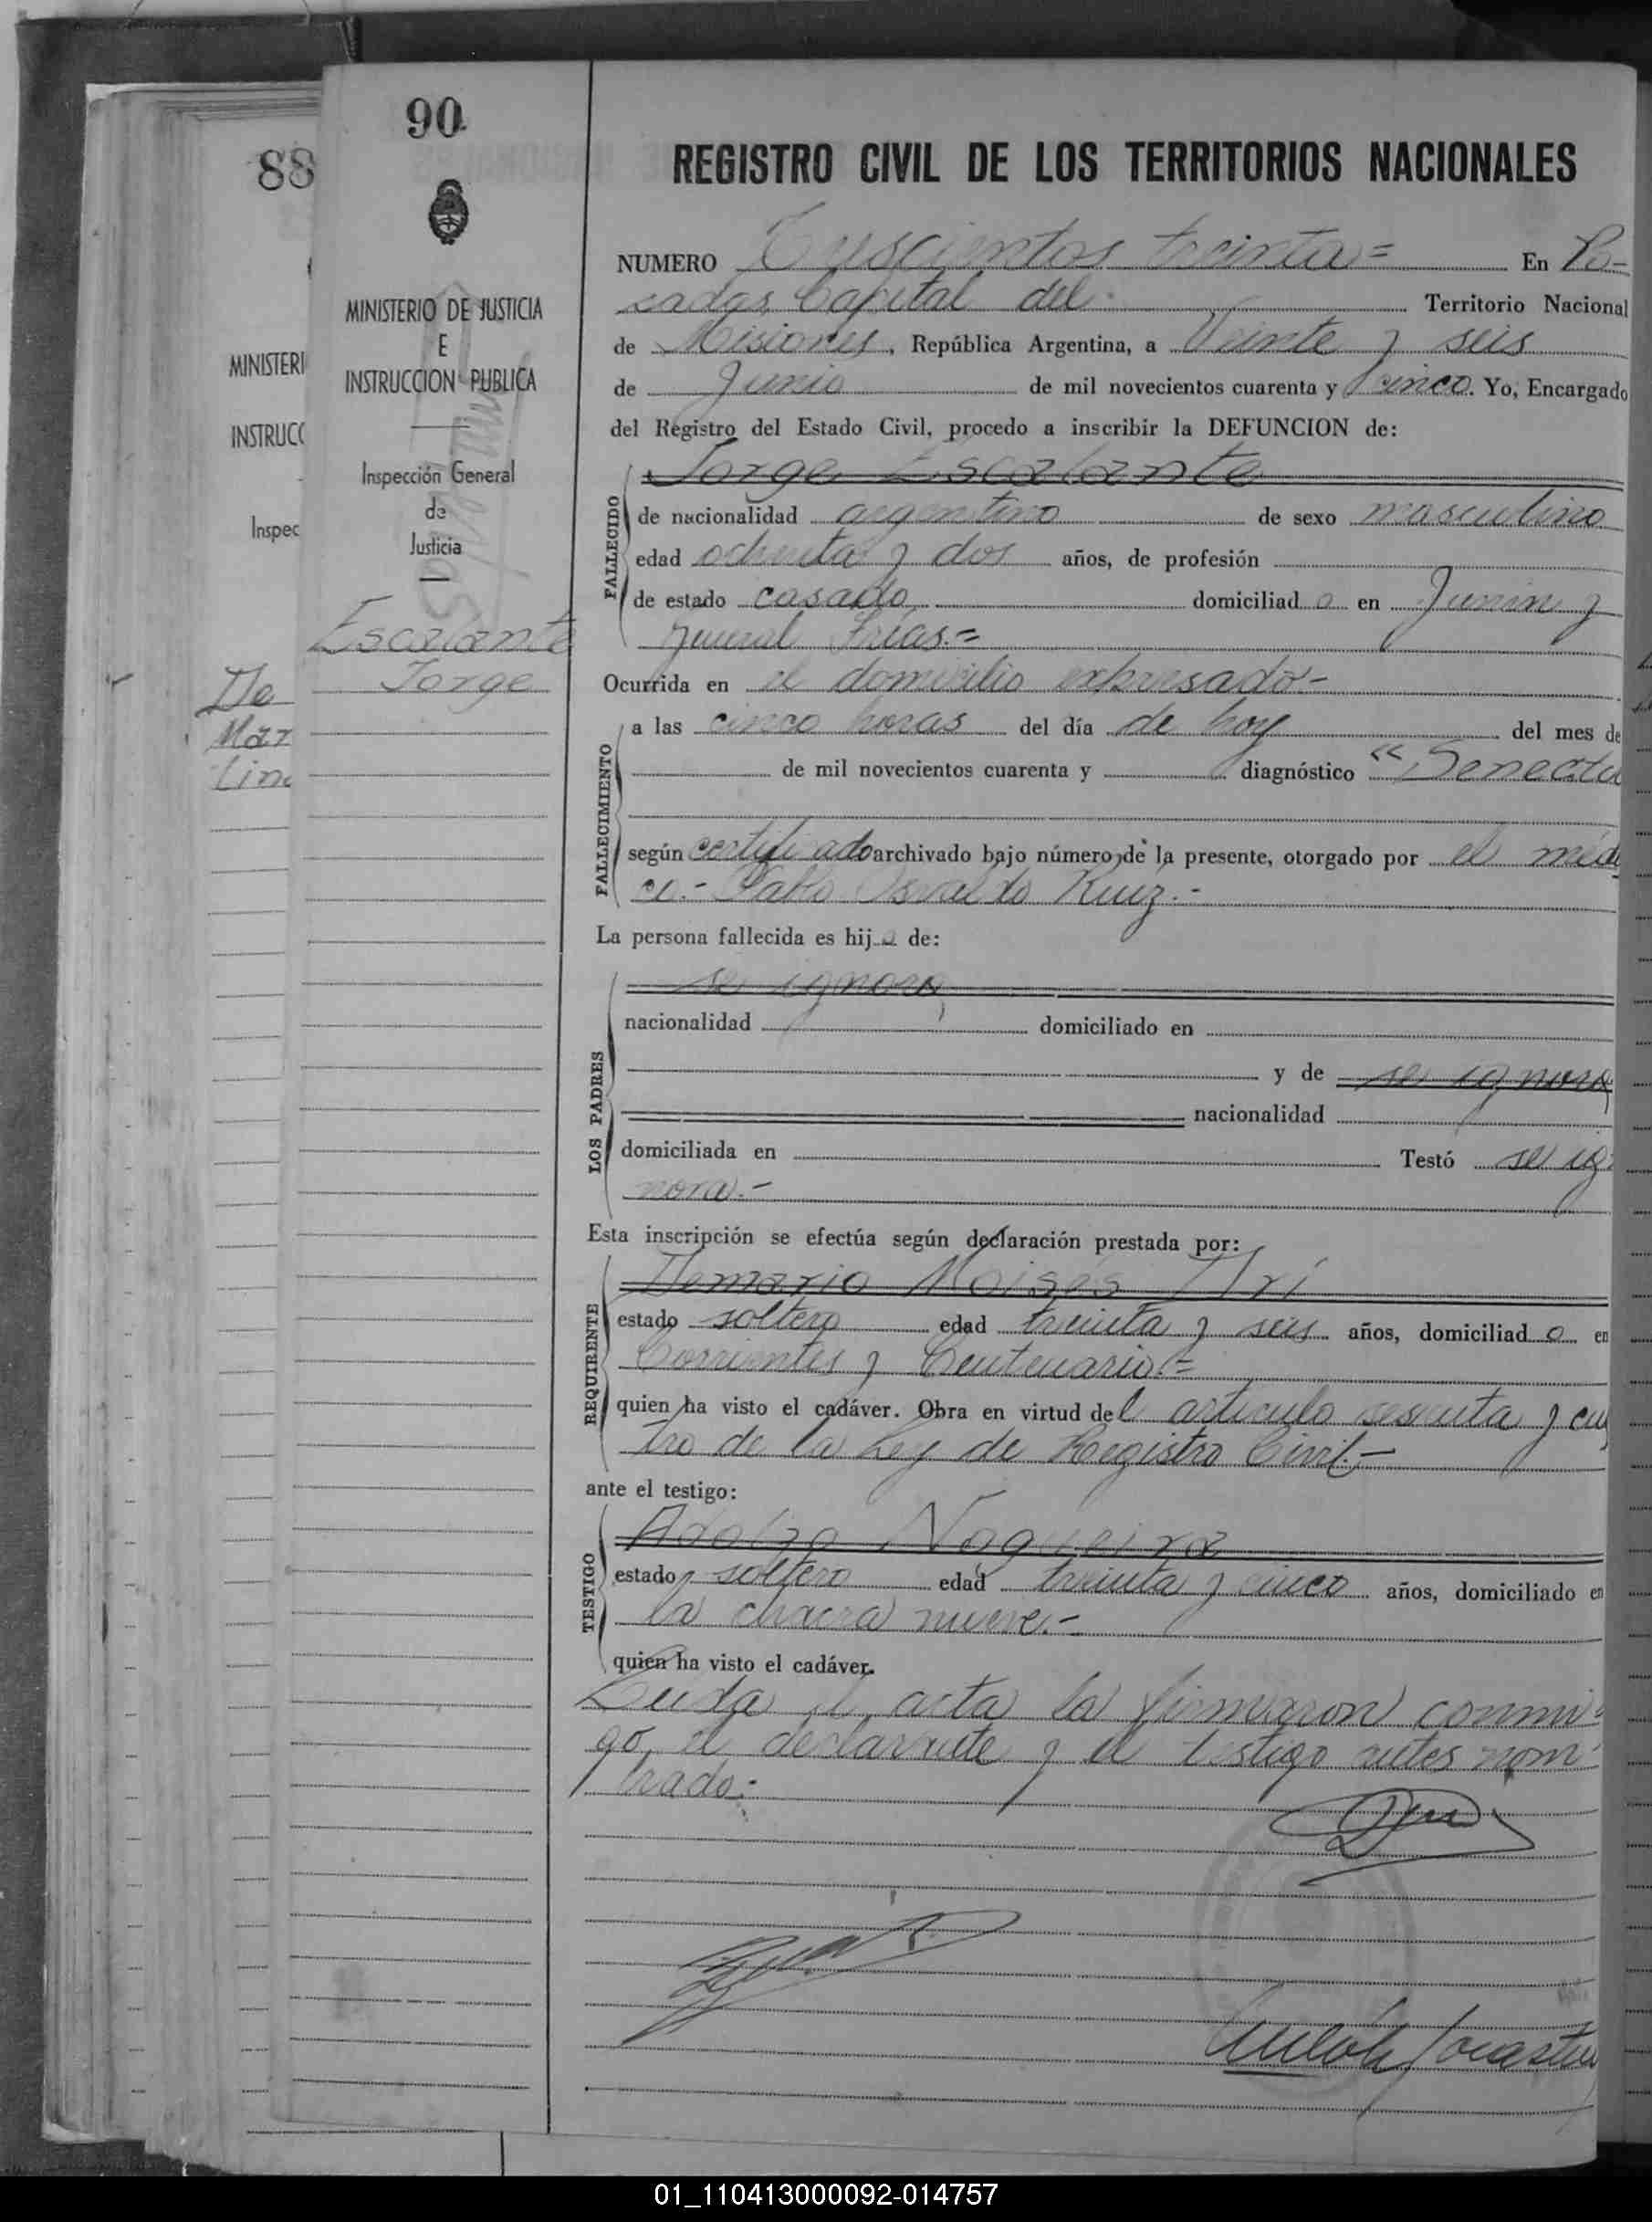 90
88
MINISTERIO DE JUSTICIA
E
INSTRUCCION PUBLICA
Inspección General
de
Justicia
Escalante
Jorge
MINISTERI
INSTRUCC
Inspec
De
Mar
tin
REGISTRO CIVIL DE LOS TERRITORIOS NACIONALES
NUMERO Trescientos treinta= En Po-
sadas, Capital del Territorio Nacional
de Misiones, República Argentina, a Veinte y seis
de Junio de mil novecientos cuarenta y cinco. Yo, Encargado
del Registro del Estado Civil, procedo a inscribir la DEFUNCION de:
Jorge Escalante
FALLECIDO
de nacionalidad argentino de sexo masculino
edad ochenta y dos años, de profesión
de estado casado domiciliad o en Junín y
General Frías.=
Ocurrida en el domicilio expresado.-
FALLECIMIENTO
a las cinco horas del día de hoy del mes de
de mil novecientos cuarenta y diagnóstico "Senectu
según certificado archivado bajo número, de la presente, otorgado por el médi
co.- Pablo Osvaldo Ruiz.-
La persona fallecida es hij o de:
LOS PADRES
se ignora
nacionalidad domiciliado en
y de se ignora
nacionalidad
domiciliada en Testó se ig
nora.-
Esta inscripción se efectúa según declaración prestada por:
REQUIRENTE
Demario Moisés
estado soltero edad treinta y seis años, domiciliad o en
Corrientes y Centenario.=
quien ha visto el cadáver. Obra en virtud del artículo sesenta y cua
tro de la Ley de Registro Civil.-
ante el testigo:
TESTIGO
Adolfo Nogueira
estado soltero edad treinta y cinco años, domiciliado en
la chacra nueve.-
quien ha visto el cadáver.
Leída el acta la firmaron conmi-
go, el declarante y el testigo antes nom-
brado.-
01_110413000092-014757